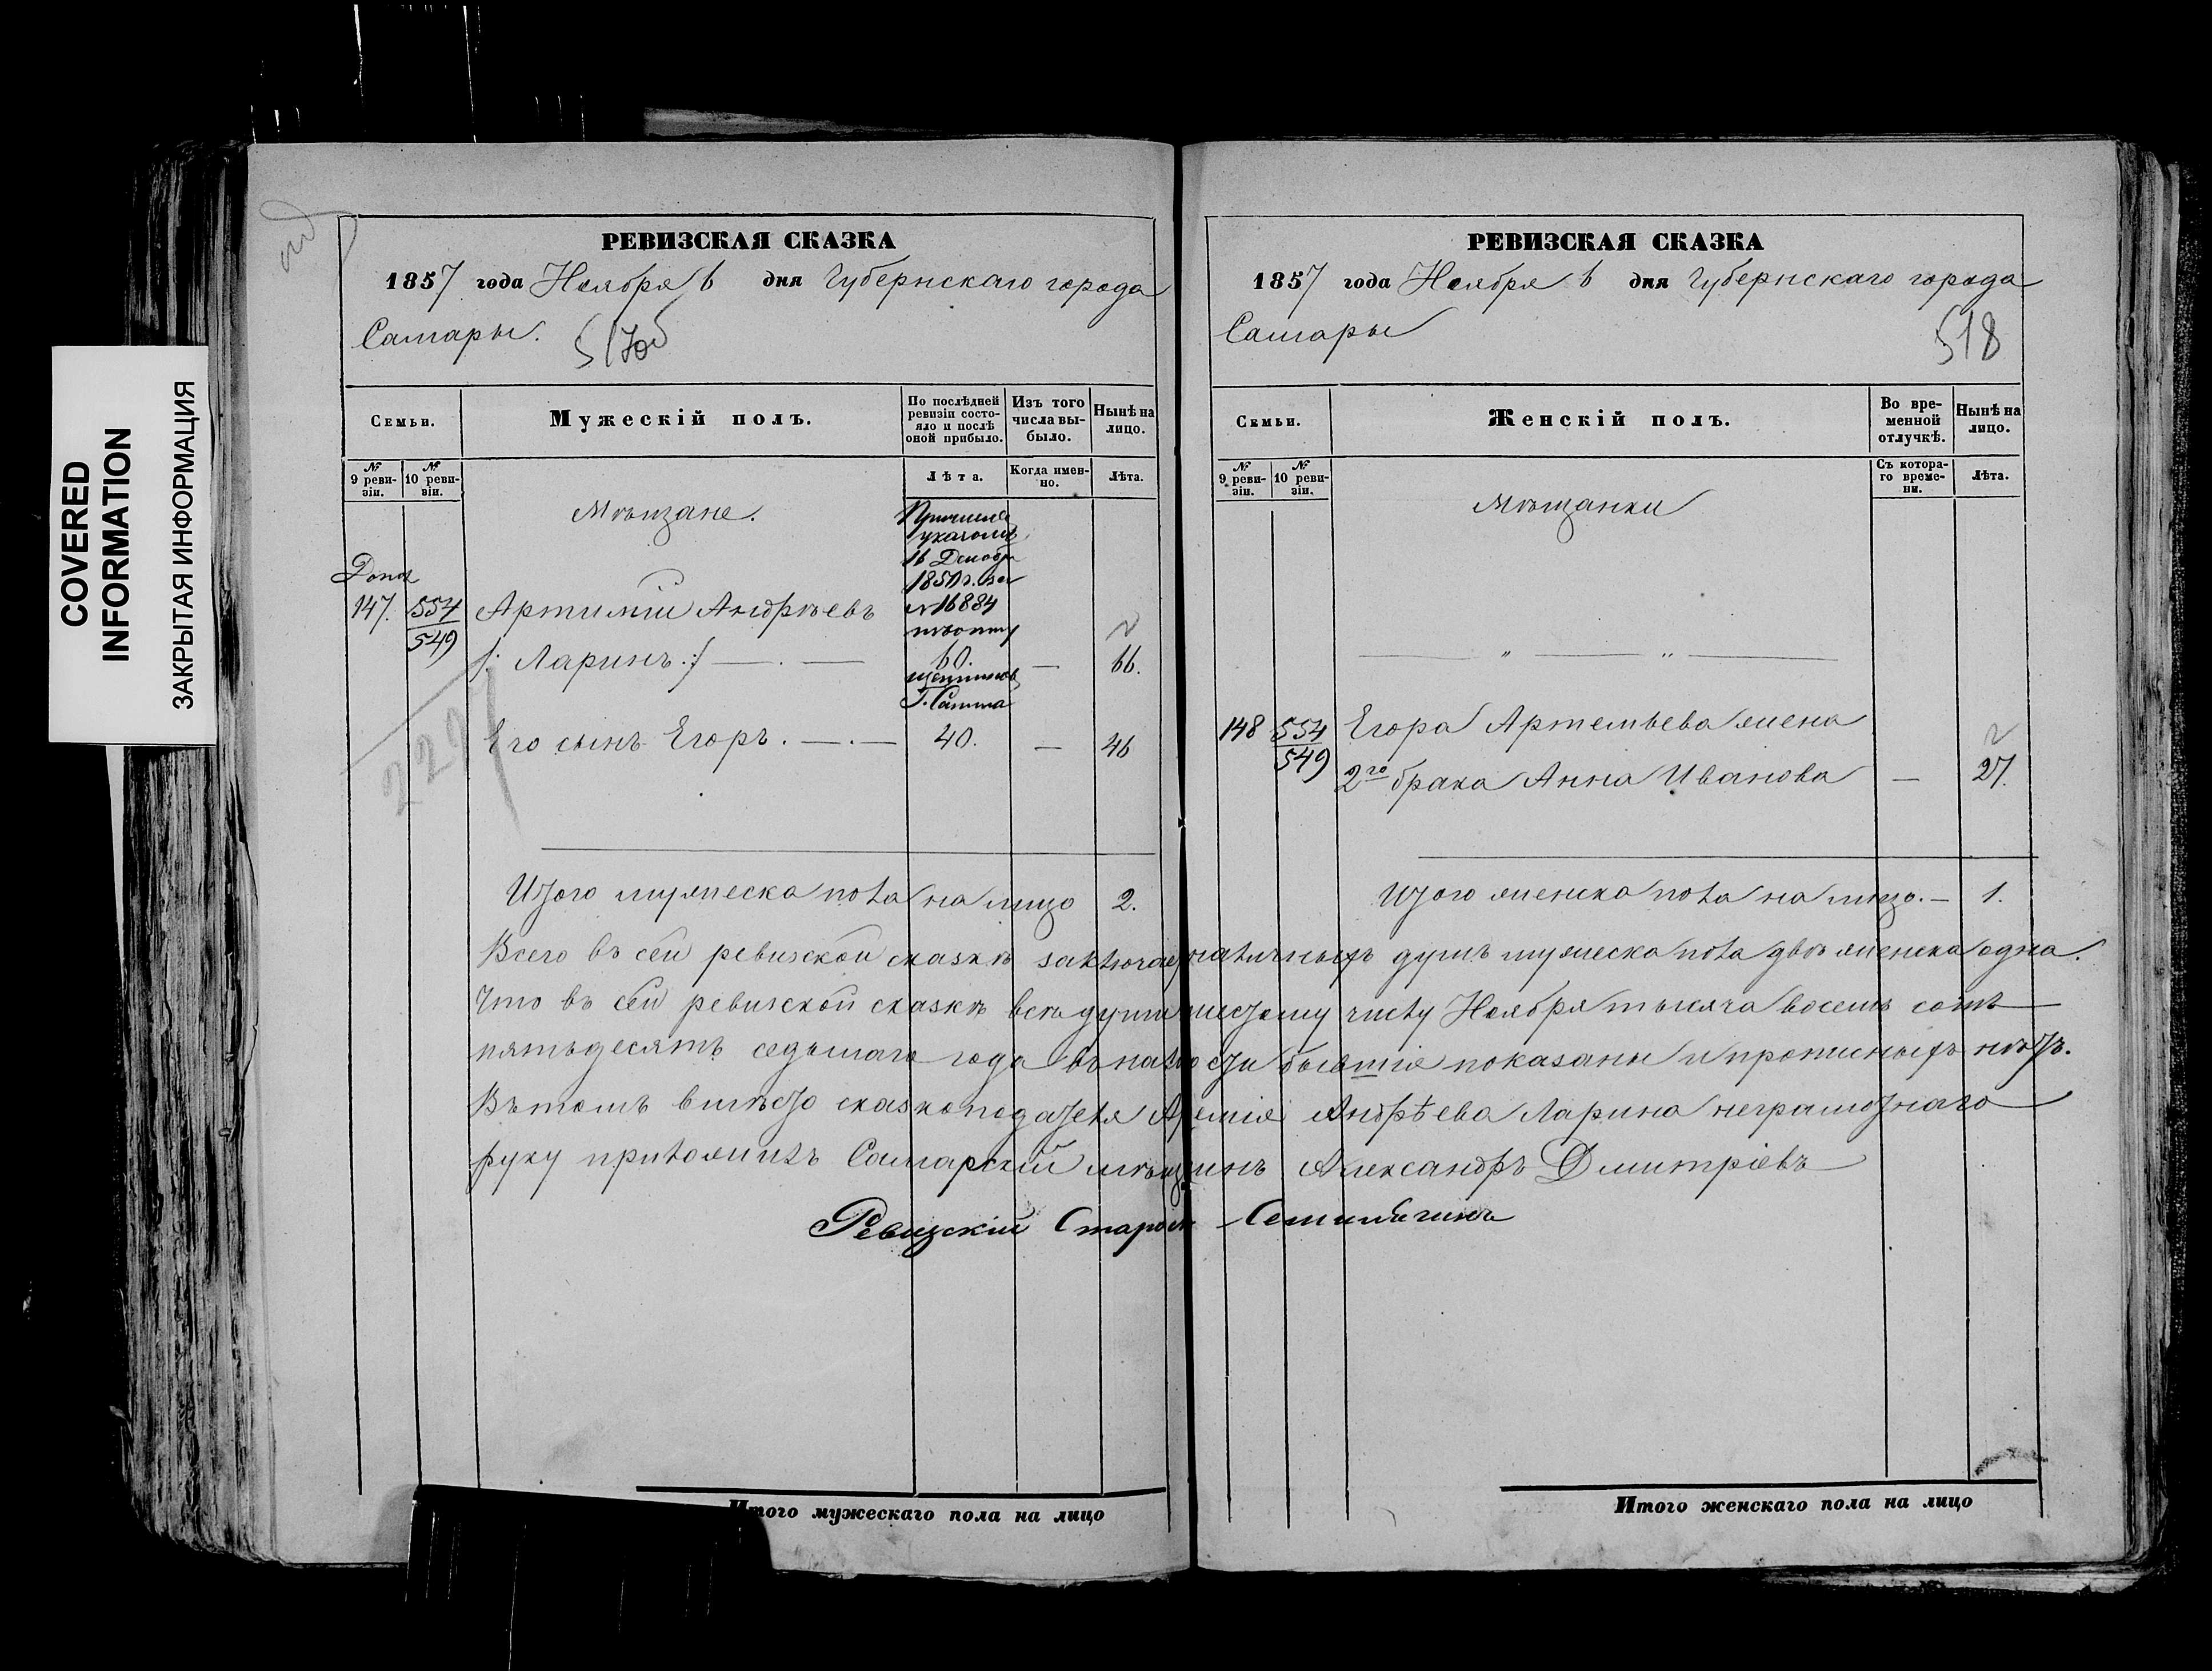 COVERED
INFORMATION
ЗАКРЫТАЯ ИНФОРМАЦИЯ
РЕВИЗСКАЯ СКАЗКА
1857 года Ноября 6 дня Губернскаго города
Самары.
517об
Семьи.
Мужескій полъ.
По послѣдней ревизіи состояло и послѣ оной прибыло.
Изъ того числа выбыло.
Нынѣ на лицо.
№ 9 ревизіи.
№ 10 ревизіи.
Лѣта.
Когда именно.
Лѣта.
Мѣщане.
Причисле
указомъ
16 Декабр
1850 г. за
№ 16884
Допол
147. 554/549 Артимій Андрѣевъ
/: Ларинъ :/ — . — 60. — 66.
Его сынъ Егоръ . — . — 40. — 46
229
Итого мужеска пола на лицо 2.
РЕВИЗСКАЯ СКАЗКА
1857 года Ноября 6 дня Губернскаго города
Самары
518
Семьи.
Женскій полъ.
Во временной отлучкѣ.
Нынѣ на лицо.
№ 9 ревизіи.
№ 10 ревизіи.
Съ котораго времени.
Лѣта.
Мѣщанки
148 554/549 Егора Артемьева жена
2го брака Анна Иванова — 27.
Итого женска пола на лицо. — 1.
Всего въ сей ревизской сказкѣ заключае наличныхъ душъ мужеска пола двѣ женска одна.
Что въ сей ревизской сказкѣ всѣ души шестому числу Ноября тысяча восемь сотъ
пятьдесятъ седьмаго года въ бывшіе показаны и прописныхъ нѣтъ.
Въ томъ вмѣсто сказкоподателя Андрѣева Ларина неграмотнаго
руку приложилъ Самарскій мѣщанинъ Александръ Дмитріевъ
Ревизскій Старос
Итого мужескаго пола на лицо
Итого женскаго пола на лицо